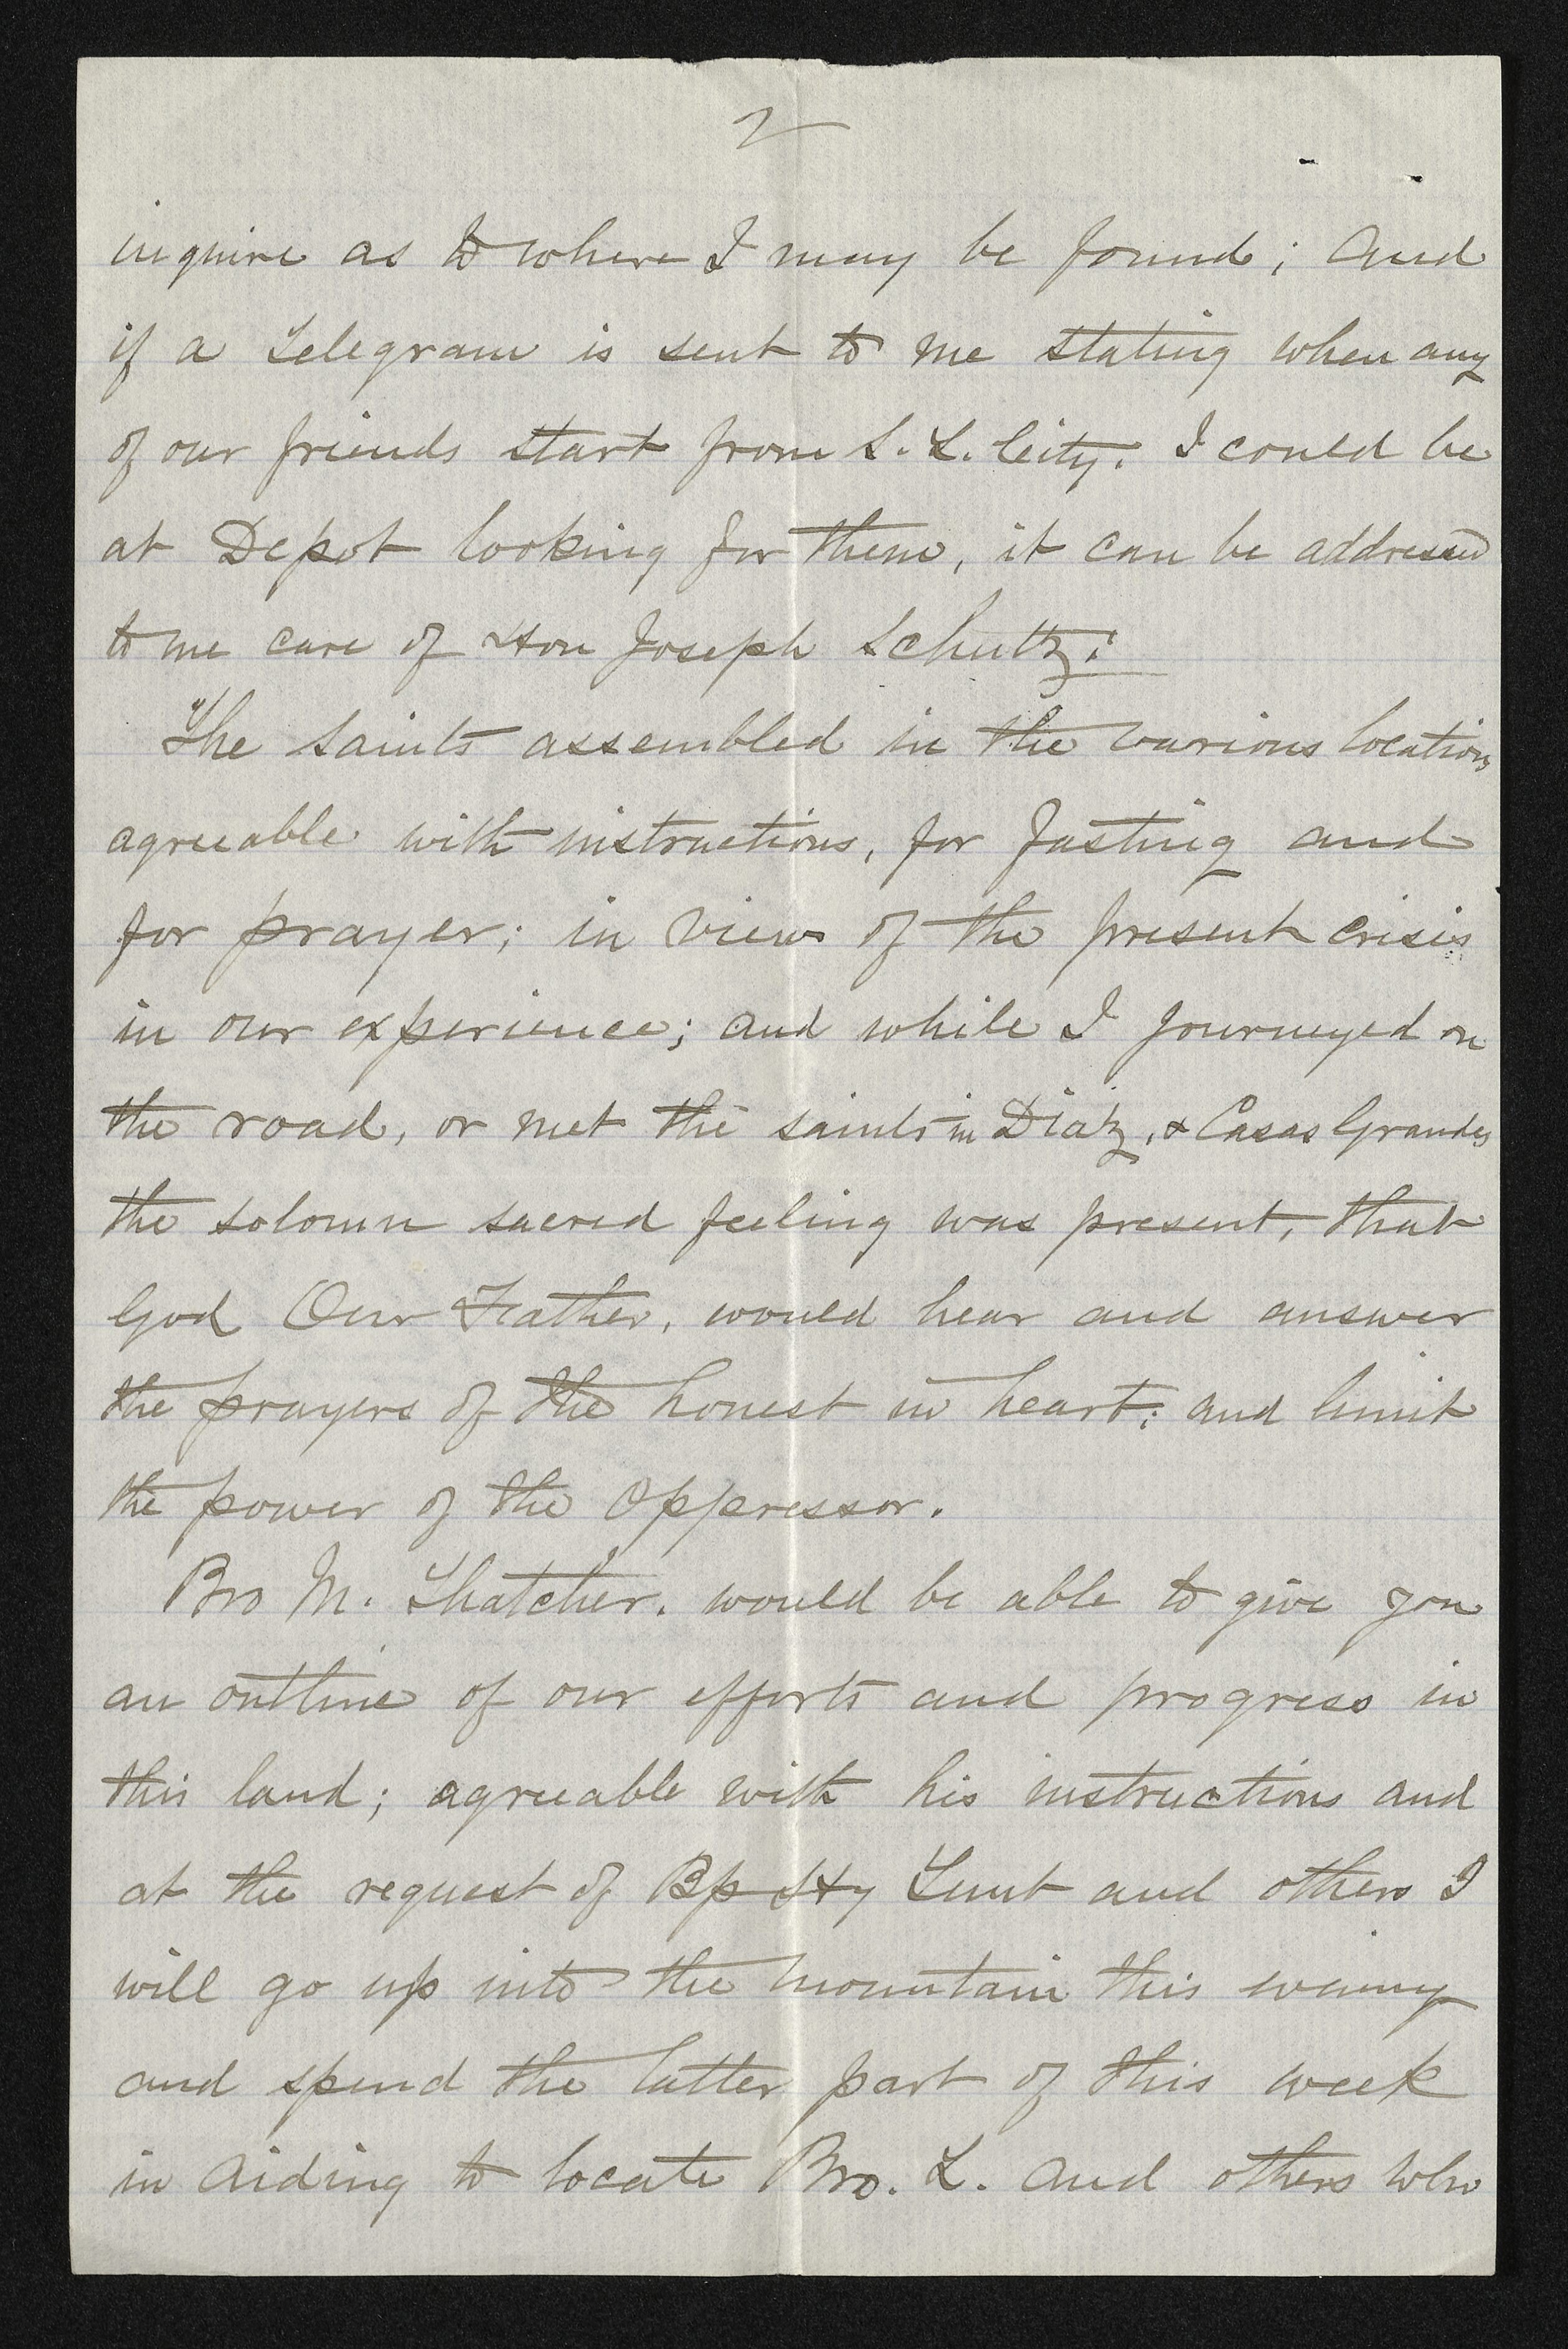 2
inquire as to where I may be found; And
if a Telegram is sent to me stating when any
of our friends start from S. L. City. I could be
at Depot looking for them, it can be addressed
to me care of Hon Joseph Schutz:
The Saints assembled in the various locations
agreeable with instructions, for fasting and
for prayer; in view of the present crisis
in our experience; and while I journeyed on
the road, or met the saints in Diaz, & Casas Grandes
the solomn sacred feeling was present, that
God Our Father, would hear and answer
the prayers of the honest in heart; and limit
the power of the Oppressor.
Bro M. Thatcher. would be able to give you
an outline of our efforts and progress in
this land; agreeable with his instructions and
at the request of Bp Hy Lunt and others I
will go up into the mountain this evening
and spend the latter part of this week
in aiding to locate Bro. L. and others who